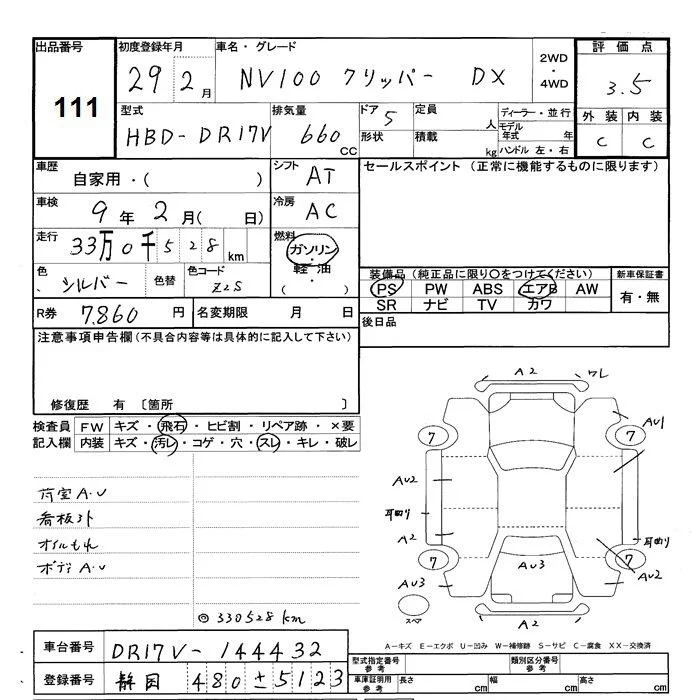 出品番号
111
初度登録年月
29 2月
車名・グレード
NV100 クリッパー DX
2WD
・
4WD
評価点
3.5
型式
HBD-DR17V
排気量
660 CC
ドア 5
形状
定員 人
積載 kg
ディーラー・並行
モデル年式 年
ハンドル 左・右
外装 内装
C C
車歴
自家用・( )
シフト
AT
セールスポイント (正常に機能するものに限ります)
車検
9年 2月( 日)
冷房
AC
走行
33万0千528km
燃料
ガソリン・
軽油・
( )
色
シルバー
色替
色コード
Z2S
装備品(純正品に限り〇をつけてください)
新車保証書
PS PW ABS エアB AW
有・無
SR ナビ TV カワ
R券 7,860 円
名変期限 月 日
後日品
注意事項申告欄(不具合内容等は具体的に記入して下さい)
修復歴 有 〔箇所 〕
検査員 FW キズ・飛石・ヒビ割・リペア跡・×要
記入欄 内装 キズ・汚レ・コゲ・穴・スレ・キレ・破レ
荷室A・U
看板外
オイルもれ
ボディA・U
◎330528km
A2 ワレ
7 7
AU1
AU2
耳曲り
A2
耳曲り
7 7
AU3
AU3
AU2
スペア
A2
A-キズ E-エクボ U-凹み W-補修跡 S-サビ C-腐食 XX-交換済
車台番号 DR17V-144432
登録番号 静岡 480 と5123
型式指定番号
参考
類別区分番号
参考
車庫証明用
参考
長さ cm
幅 cm
高さ cm